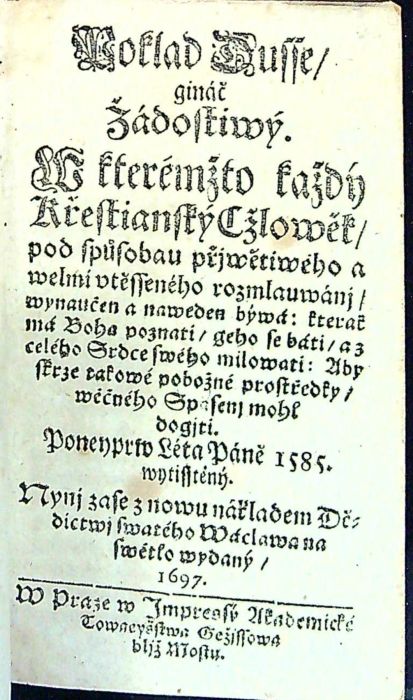 Poklad Dusse/
gináč
Žádostiwý.
W kterémžto každý
Křestianský Cžlowěk/
pod spůsobau přjwětiwého a
welmi vtěsseného rozmlauwánj/
wynaučen a naweden býwá: kterak
má Boha poznati/ geho se báti/ a z
celého Srdce swého milowati: Aby
skrze takowé pobožné prostředky/
wěčného Spasenj mohl
dogjti.
Poneyprw Léta Páně 1585.
wytisstěný.
Nynj zase z nowu nákladem Dě-
dictwj swatého Wáclawa na
swětlo wydaný/
1697.
W Praze w Impressý Akademické
Towaryšstwa Gežissowa
bljž Mostu.